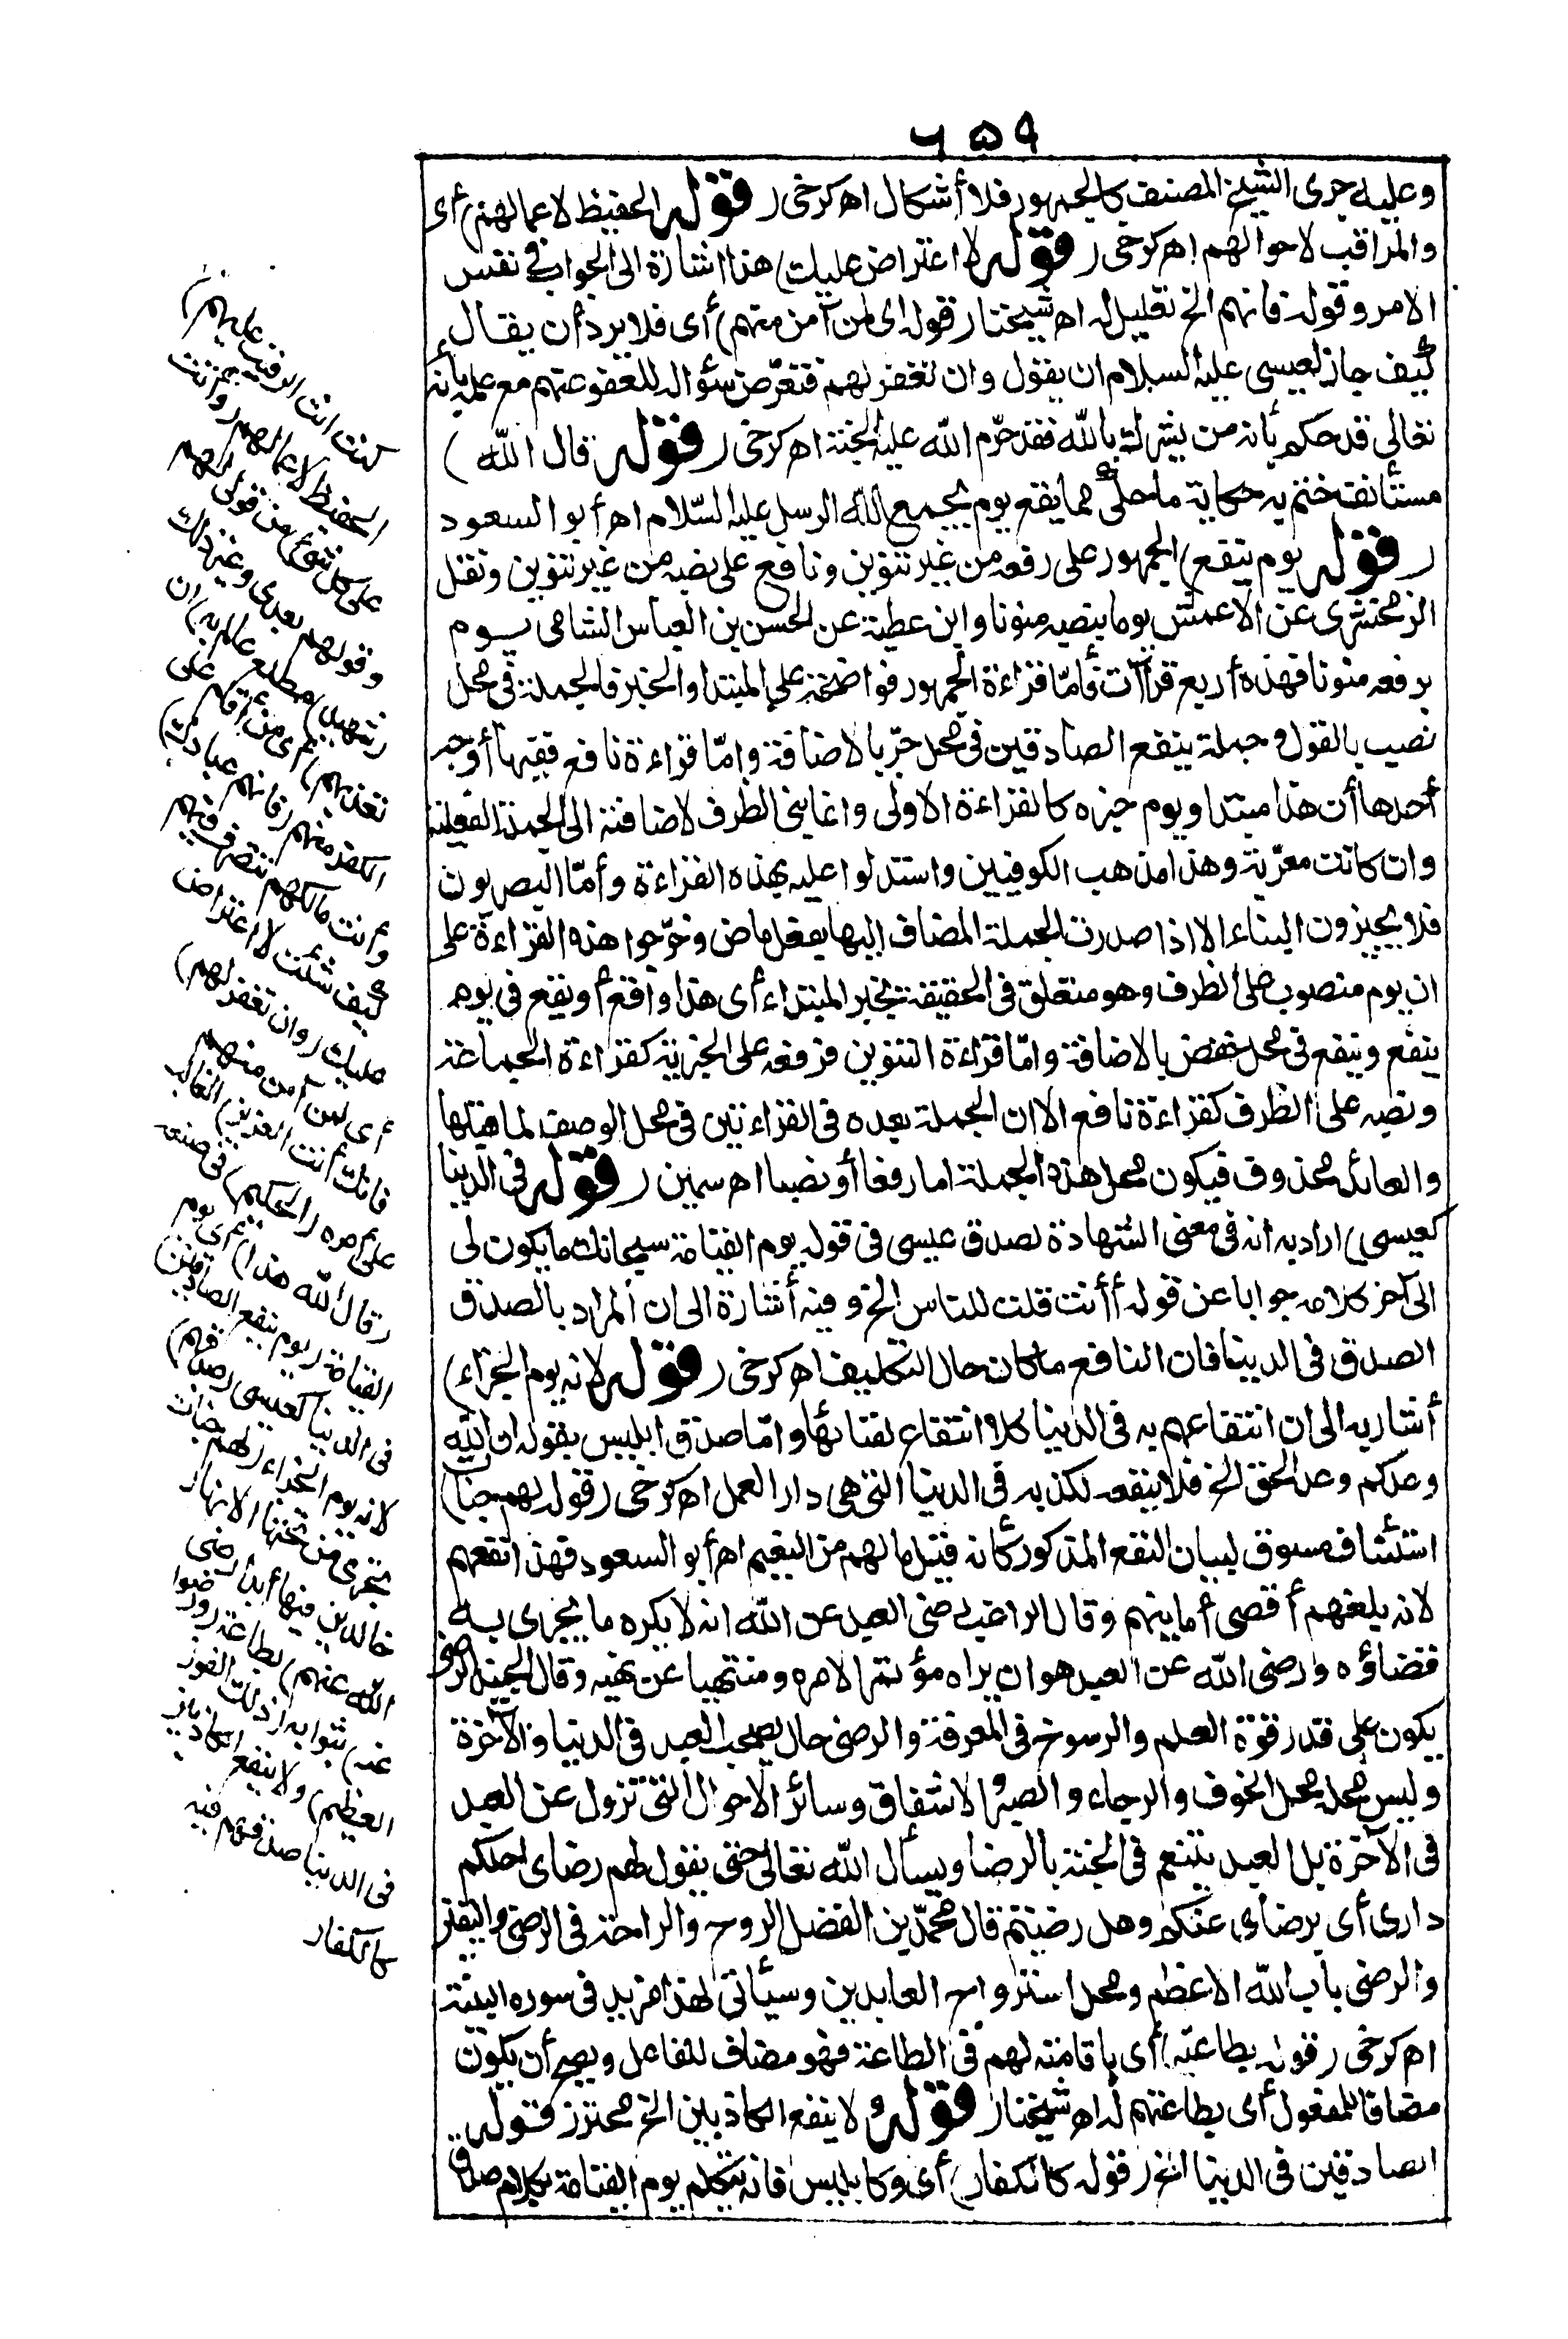 ٦٥٩
وعليه جرى الشيخ المصنف كالجمهور فلا أشكال اه كرخى (قوله الحفيظ لاعمالهم) أى
والمراقب لاحوالهم اه كرخى (قوله لا اعتراض عليك) هذا اشارة الى الجواب فى نفس
الامر وقوله فانهم الخ تعليل له اه شيخنا (قوله اى لمن آمن منهم) أى فلا يرد أن يقال
كيف جاز لعيسى عليه السلام ان يقول وان تغفر لهم فتعرّض سؤاله للعفو عنهم مع علمه بأنه
تعالى قد حكم بأنه من يشرك بالله فقد حرّم الله عليه الجنة اه كرخى (قوله قال الله)
مستأنف ختم به حكاية ما حكى مما يقع يوم يجمع الله الرسل عليه السّلام اه أبو السعود
(قوله يوم ينفع) الجمهور على رفعه من غير تنوين ونافع على نصبه من غير تنوين ونقل
الزمخشرى عن الاعمش يوما بنصبه منونا وابن عطية عن الحسن بن العباس الشامى يوم
برفعه منونا فهذه أربع قرآات فأمّا قراءة الجمهور فواضحة على المبتدا والخبر فالجملة فى محل
نصب بالقول وجملة ينفع الصادقين فى محل جرّ بالاضافة وامّا قراءة نافع ففيها أوجه
أحدها أن هذا مبتدا ويوم خبره كالقراءة الاولى وانما بنى الظرف لاضافته الى الجملة الفعلية
وان كانت معربة وهذا مذهب الكوفيين واستدلوا عليه بهذه القراءة وأمّا البصريون
فلا يجيزون البناء الا اذا صدرت الجملة المضاف اليها بفعل ماض وخرّجوا هذه القراءة على
ان يوم منصوب على الظرف وهو متعلق فى الحقيقة بخبر المبتداء أى هذا واقع أو يقع فى يوم
ينفع وينفع فى محل خفض بالاضافة وامّا قراءة التنوين فرفعه على الخبرية كقراءة الجماعة
ونصبه على الظرف كقراءة نافع الا ان الجملة بعده فى القراءتين فى محل الوصف لما قبلها
والعائد محذوف فيكون محل هذه الجملة اما رفعا أو نصبا اه سمين (قوله فى الدنيا
كعيسى) اراد به انه فى معنى الشهادة لصدق عيسى فى قوله يوم القيامة سبحانك ما يكون لى
الى آخر كلامه جوابا عن قوله أأنت قلت للناس الخ وفيه أشارة الى ان المراد بالصدق
الصدق فى الدنيا فان النافع ما كان حال التكليف اه كرخى (قوله لانه يوم الجزاء)
أشار به الى ان انتفاعهم به فى الدنيا كلا انتفاع لفنائها وامّا صدق ابليس بقوله ان الله
وعدكم وعد الحق الخ فلا ينفعه لكذبه فى الدنيا التى هى دار العمل اه كرخى (قوله لهم جنات)
استئناف مسوق لبيان النفع المذكور كأنه قيل ما لهم من النعيم اه أبو السعود فهذا نفعهم
لانه يلغهم أقصى أمانيهم وقال الراغب رضى العبد عن الله انه لا يكره ما يجرى به
قضاؤه ورضى الله عن العبد هو ان يراه مؤتمرا لامره ومنتهيا عن نهيه وقال الجنيد الرضى
يكون على قدر قوة العلم والرسوخ فى المعرفة والرضى حال يصحب العبد فى الدنيا والآخرة
وليس محله محل الخوف والرجاء والصبر والاشفاق وسائر الاحوال التى تزول عن العبد
فى الآخرة بل العبد يتنعم فى الجنة بالرضا ويسأل الله تعالى حتى يقول لهم رضاى احلكم
دارى أى برضاى عنكم وهل رضيتم قال محمّد بن الفضل الروح والراحة فى الرضى واليقين
والرضى باب الله الاعظم ومحل استرواح العابدين وسيأتى لهذا مزيد فى سوره البينة
اه كرخى (قوله بطاعته) أى باقامته لهم فى الطاعة فهو مضاف للفاعل ويصح أن يكون
مضافا للمفعول أى بطاعتهم له اه شيخنا (قوله ولا ينفع الكاذبين الخ محترز قوله
الصادقين فى الدنيا الخ (قوله كالكفار) أى وكابليس فانه يتكلم يوم القيامة بكلام صادق
كنت انت الرقيب عليهم)
الحفيظ لاعمالهم (وانت
على كل شئ) من قولى لهم
وقولهم بعدى وغير ذلك
(شهيد) مطلع عالم به (ان
تعذبهم) أى من أقام على
الكفر منهم (فانهم عبادك)
وأنت مالكهم تتصرف فيهم
كيف شئت لا اعتراض
عليك (وان تغفر لهم)
أى لمن آمن منهم
فانك أنت العزيز) الغالب
على أمره (الحكيم) فى صنعه
(قال الله هذا) أى يوم
القيامة (يوم ينفع الصادقين)
فى الدنيا كعيسى (صدقهم)
لانه يوم الجزاء (لهم جنات
تجرى من تحتها الانهار
خالدين فيها أبدا رضى
الله عنهم) بطاعته (ورضوا
عنه) بثوابه (ذلك الفوز
العظيم) ولا ينفع الكاذبين
فى الدنيا صدقهم فيه
كالكفار